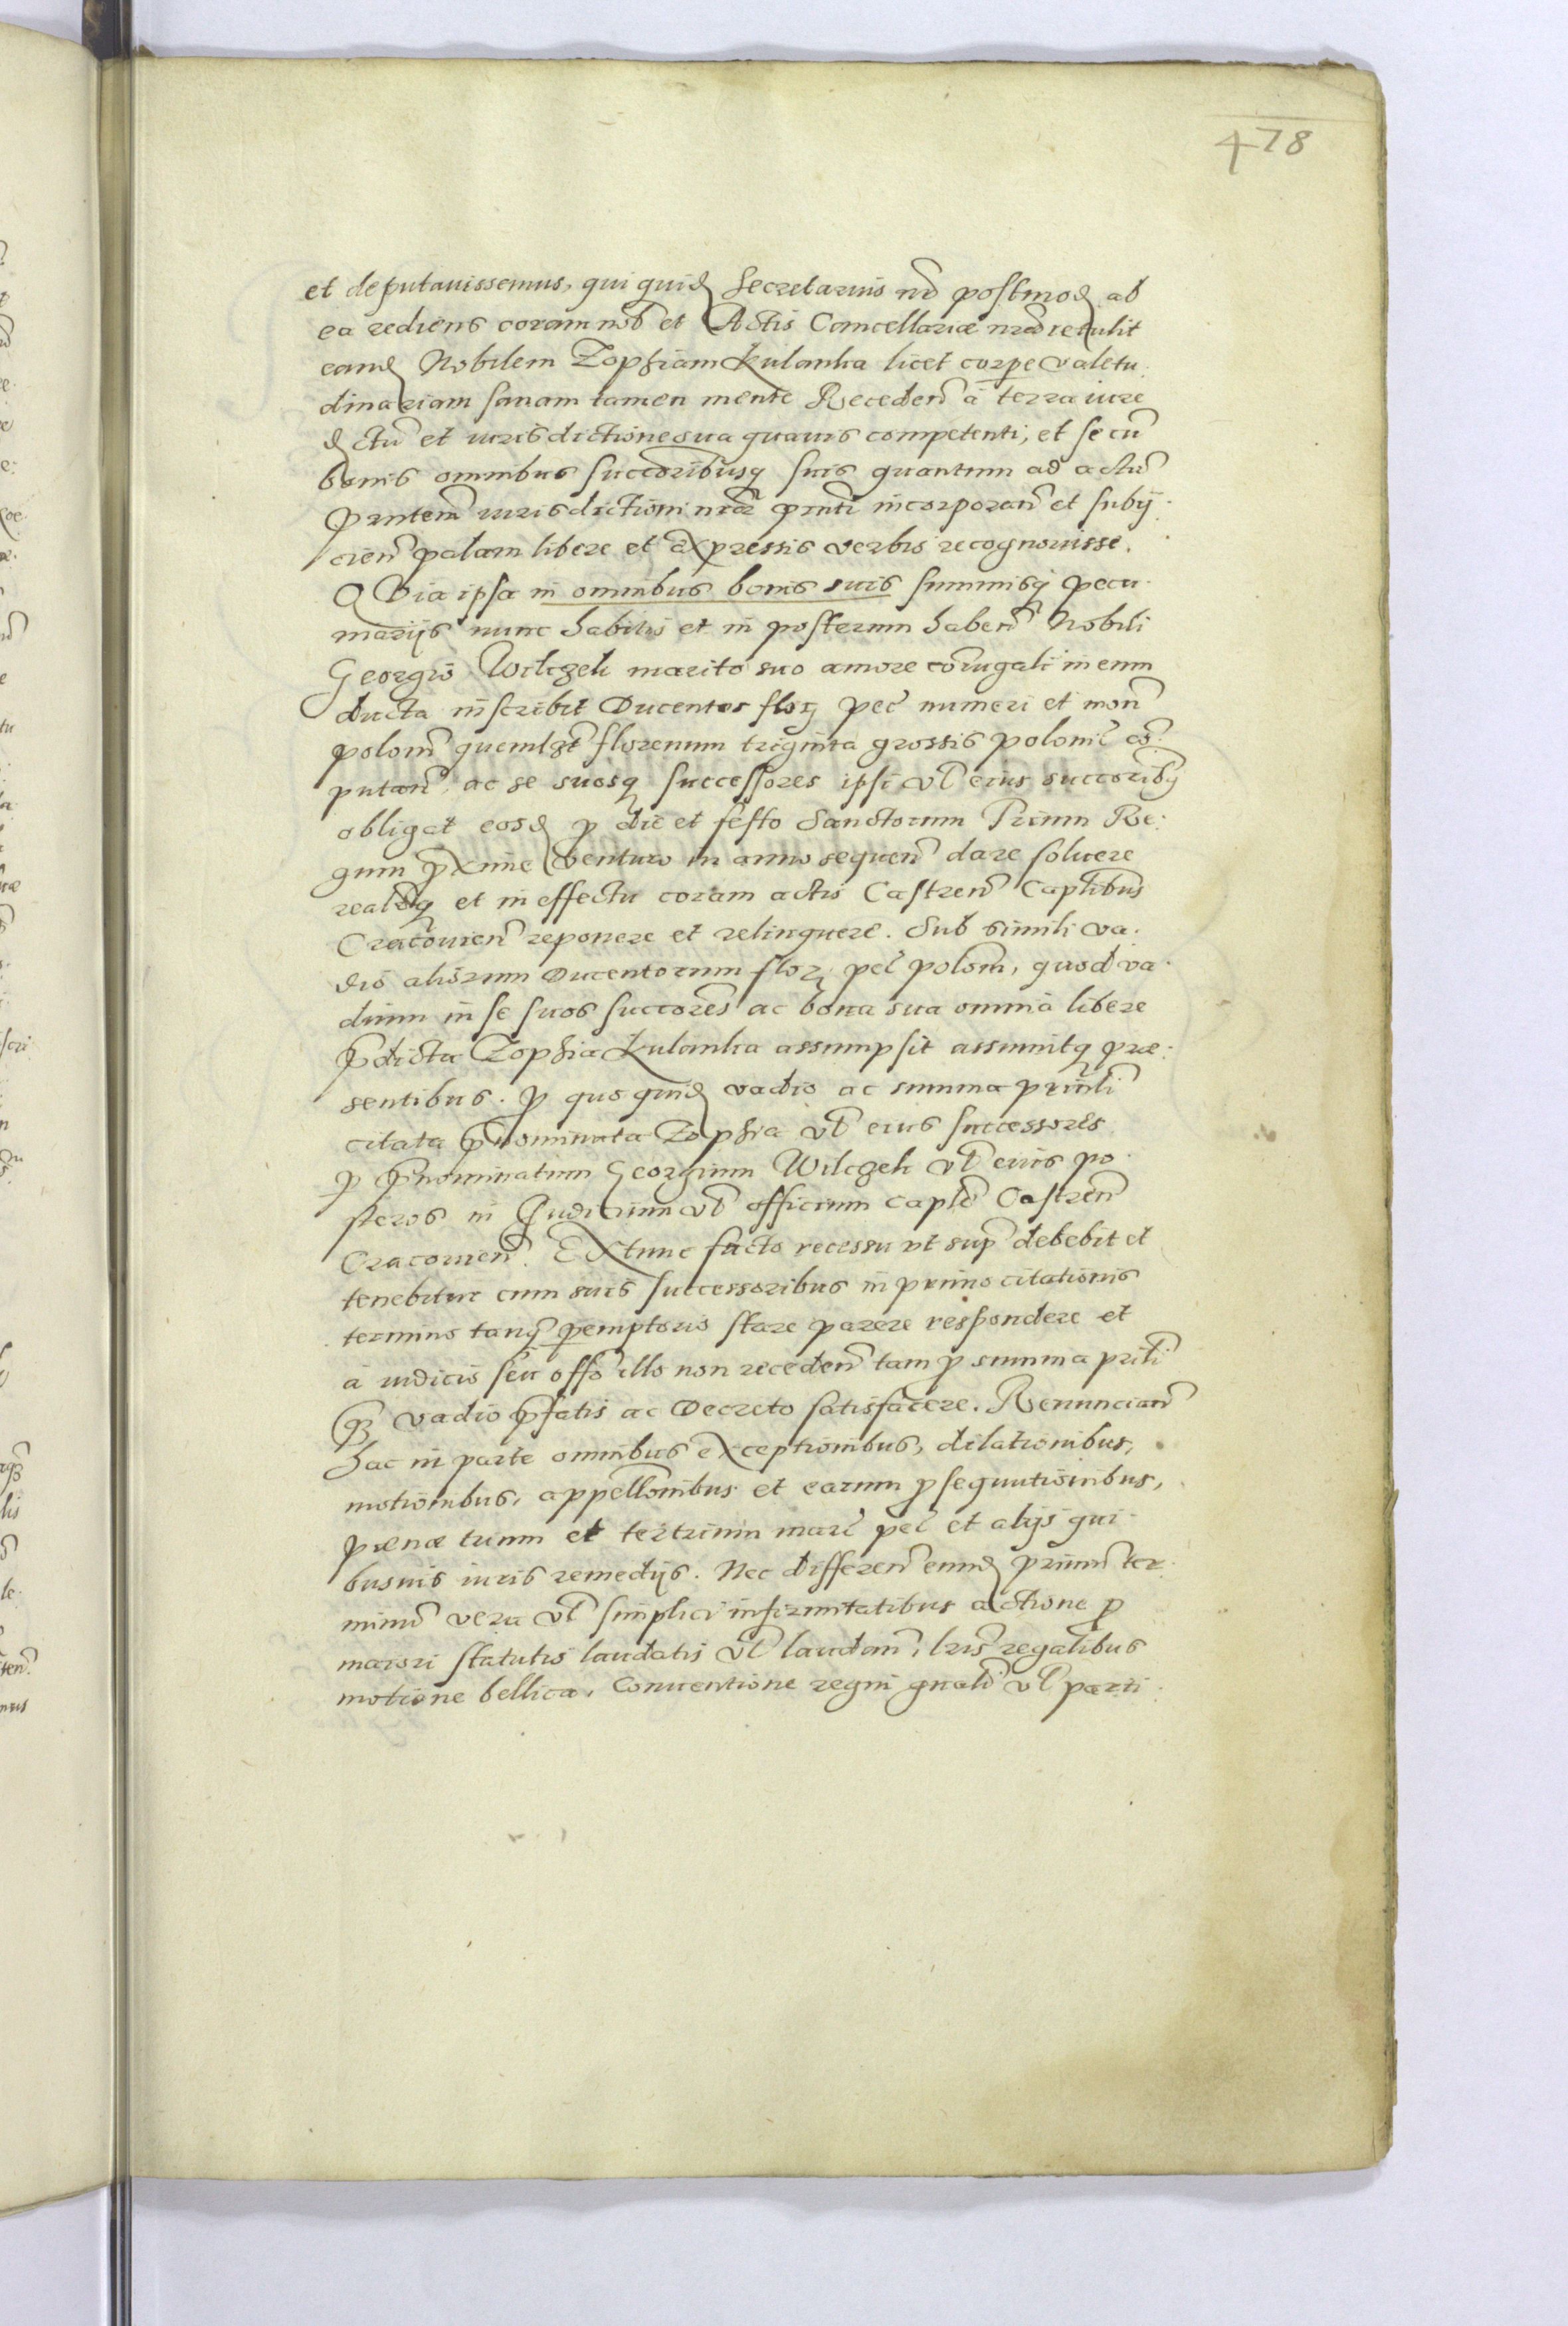 478
et deputauissemus, qui quid Secretarius nr̄ postmod ab
ea rediens coram nob̄ et Actis Cancellariæ nr̄æ retulit
eand Nobilem Zophiam Kulanka licet corpe valetu
dinariam sanam tamen mente Receden̄ à terra iure
d ctu͂ et iurisdictione sua quauis competenti, et se cu͂
bonis omnibus succoribusq suis quantum ad actu͂
prntem̄ iurisdictioni nræ prnti incorporan̄ et subij
cien̄ palam libere et expressis verbis recognouisse.
QVia ipsa in omnibus bonis suis summisq pecu
niarijs nunc habitis et in posterum haben̄ Nobili
Georgio Wilczek marito suo amore coniugali in eum
ducta inscribit Ducentos flor pec̄ numeri et mon̄
polon̄ quemlȝt florenum triginta grossis polonic̄ co͂
putan̄ ac se suosq successores ipsi vl̄ eius succoribȝ
obligat eosd p die et festo Sanctorum Trium Re
gum pxime venturo in anno sequen̄ dare soluere
realrq et in effectu coram actis Castren̄ Captlibus
Cracouien̄ reponere et relinquere. Sub simili va
dio aliorum Ducentorum flor pec̄ polon̄, quod va
dium in se suos succores ac bona sua omnia libere
pdicta Zophia Kulanka assumpsit assumitq præ
sentibus. p quo quid vadio ac summa prin̄li
citata pnominata Zophia vl̄ eius successores
p pnominatum Georgium Wilczek vl̄ eius po
steros in Iudicium vl̄ officium caplē Castren̄
Cracouien̄. Extunc facto recessu vt sup̄ debebit et
tenebitur cum suis successoribus in primo citationis
termino tanq̄ pemptorio stare parere respondere et
à iudicio seu offo illo non receden̄ tam p summa prlī
q̄ vadio pfatis ac Decreto satisfacere. Renuncian̄
hac in parte omnibus exceptionibus, dilationibus,
motionibus, appellonibus et earum psequutionibus,
pænæ trium et tertrium marc̄ pec̄ et alijs qui
busuis iuris remedijs. Nec differen̄ eund primu͂ ter
minu͂ vera vl̄ simplici infirmitatibus actione p
maiori statutis laudatis vl̄ laudan̄, lris regalibus
motione bellica, Conuentione regni gnali vl̄ parti